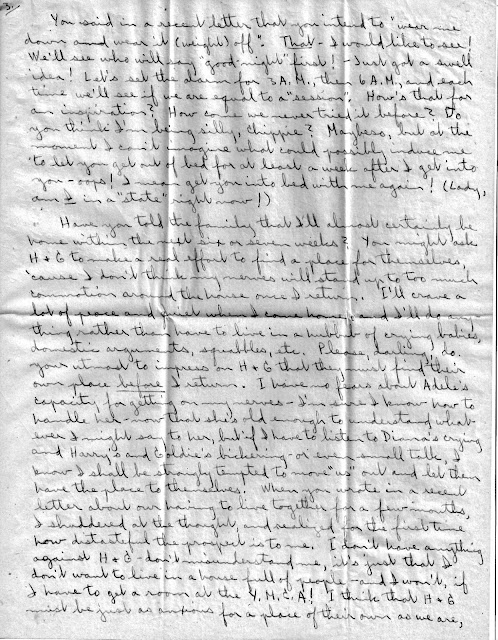 3.
You said in a recent letter that you intend to "wear me
down and wear it (weight) off". That - I would like to see!
We'll see who will say "good-night" first! - Just got a swell
idea! Let's set the alarm for 3 A.M., then 6 A.M., and each
time we'll see if we are equal to a "session". How's that for
an inspiration? How come we never tried it before? Do
you think I'm being silly, Chippie? Maybe so, but at the
moment I can't imagine what could possibly induce me
to let you get out of bed for at least a week after I get into
you - oops! I mean get you into bed with me again! (Lady,
am I in a "state" right now!)
Have you told the family that I'll almost certainly be
home within the next six or seven weeks? You might ask
H & G to make a real effort to find a place for themselves,
'cause I don't think my nerves will stand up to too much
commotion around the house once I return. I'll crave a
lot of peace and quiet when I come home, and I'll do any-
thing rather than have to live in a hubbub of crying babies,
domestic arguments, squabbles, etc. Please, darling, do
your utmost to impress on H & G that they must find their
own place before I return. I have no fears about Adele's
capacity for getting on my nerves - I'm sure I know how to
handle her - now that she's old enough to understand what-
ever I might say to her, but if I have to listen to Dianna's crying
and Harry's and Goldie's bickering - or even small talk, I
know I shall be strongly tempted to move "us" out and let them
have the place to themselves. When you wrote in a recent
letter about our having to live together for a few months,
I shuddered at the thought, and realized for the first time
how distasteful the prospect is to me. I don't have anything
against H & G - don't misunderstand me, it's just that I
don't want to live in a house full of people - and I won't, if
I have to get a room at the Y.M.C.A! I think that H & G
must be just as anxious for a place of their own as we are,